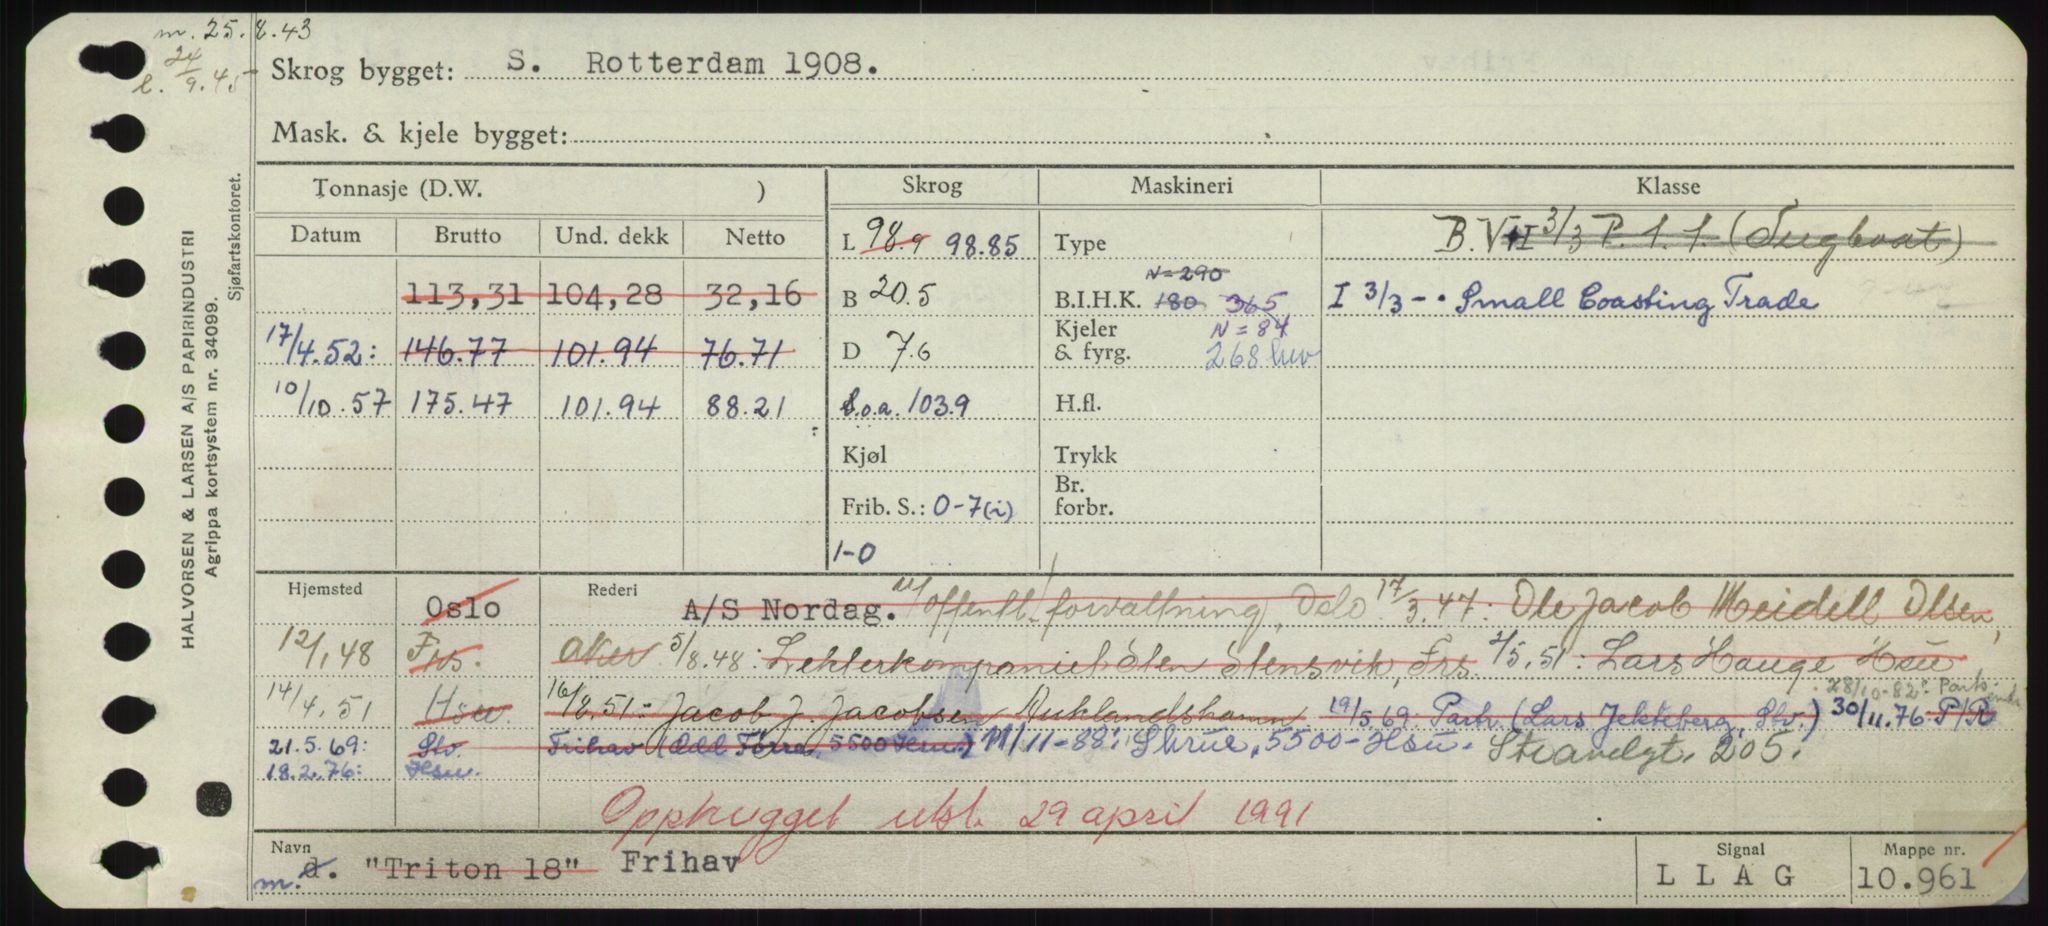 m. 25.8.43
l. 24/9.45
Skrog bygget: S. Rotterdam 1908.
Mask. & kjele bygget:
HALVORSEN & LARSEN A/S PAPIRINDUSTRI
Agrippa kortsystem nr. 34099.
Sjøfartskontoret.
Tonnasje (D.W. ) Skrog Maskineri Klasse
Datum Brutto Und. dekk Netto L 98.9 98.85 Type B. VII 3/3 P. 1. 1. (Tugboat)
N=290
113,31 104,28 32,16 B 20.5 B.I.H.K. 180 365 I 3/3 - . Small Coasting Trade
Kjeler N = 84
17/4.52: 146.77 101.94 76.71 D 7.6 & fyrg. 268
10/10.57 175.47 101.94 88.21 l.o.a. 103.9 H.fl.
Kjøl Trykk
Br.
Frib. S.: 0-7(i) forbr.
1-0
Hjemsted Oslo Rederi A/S Nordag. offentl. forvaltning, Oslo 17/3.47: Ole Jacob Meidell Olsen,
12/1.48 Frs. Oker 5/8.48: Lekterkompaniet Sten Stensvik, Frs. 2/5.51: Lars Hauge Hsu
14/4.51 Hsu. 16/8.51: Jacob J. Jacobsen Auklandshamn 19/5.69: Partr. (Lars Jekteberg, Stv.) 30/11.76 P/R
28/10-82: Parts
21.5.69: Stv. Frihav (Odd Førre, 5500 Hsu.) 11/11-88: Skrue, 5500-Hsu. Strandgt. 205.
18.2.76: Hsu.
Opphugget utst. 29 april 1991
Navn Signal Mappe nr.
m. d. "Triton 18" Frihav L L A G 10.961